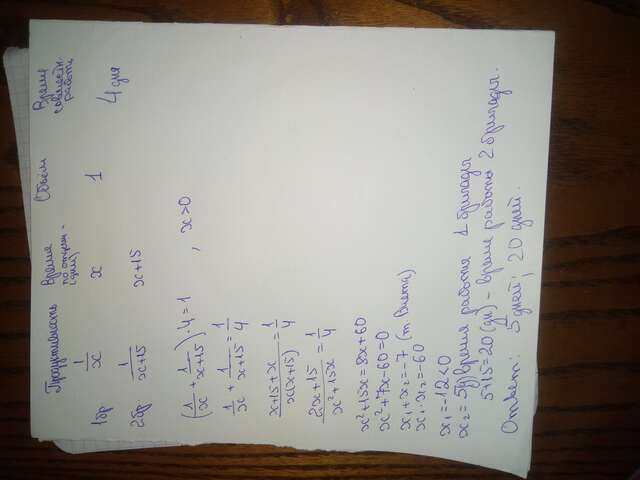 Продуктивность Время по отдел-и (дни) Объём Время совместн. работы
1бр 1/x x 1 4 дня
2бр 1/x+15 x+15
(1/x + 1/x+15) · 4 = 1 , x>0
1/x + 1/x+15 = 1/4
x+15+x/x(x+15) = 1/4
2x+15/x²+15x = 1/4
x²+15x=8x+60
x²+7x-60=0
x₁+x₂=-7 (т. Виета)
x₁·x₂=-60
x₁=-12<0
x₂=5 время работы 1 бригады
5+15=20(дн) - время работы 2 бригады.
Ответ: 5 дней; 20 дней.